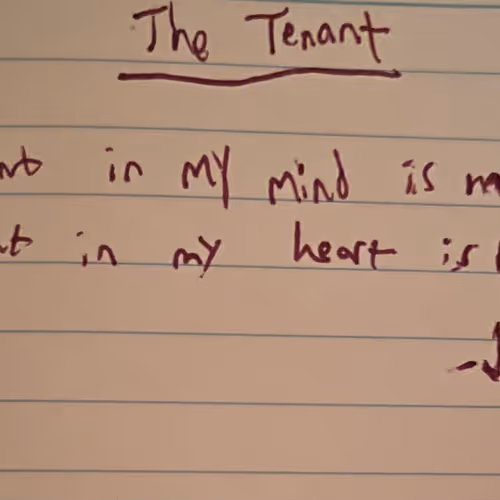 The Tenant
in my mind is
in my heart is